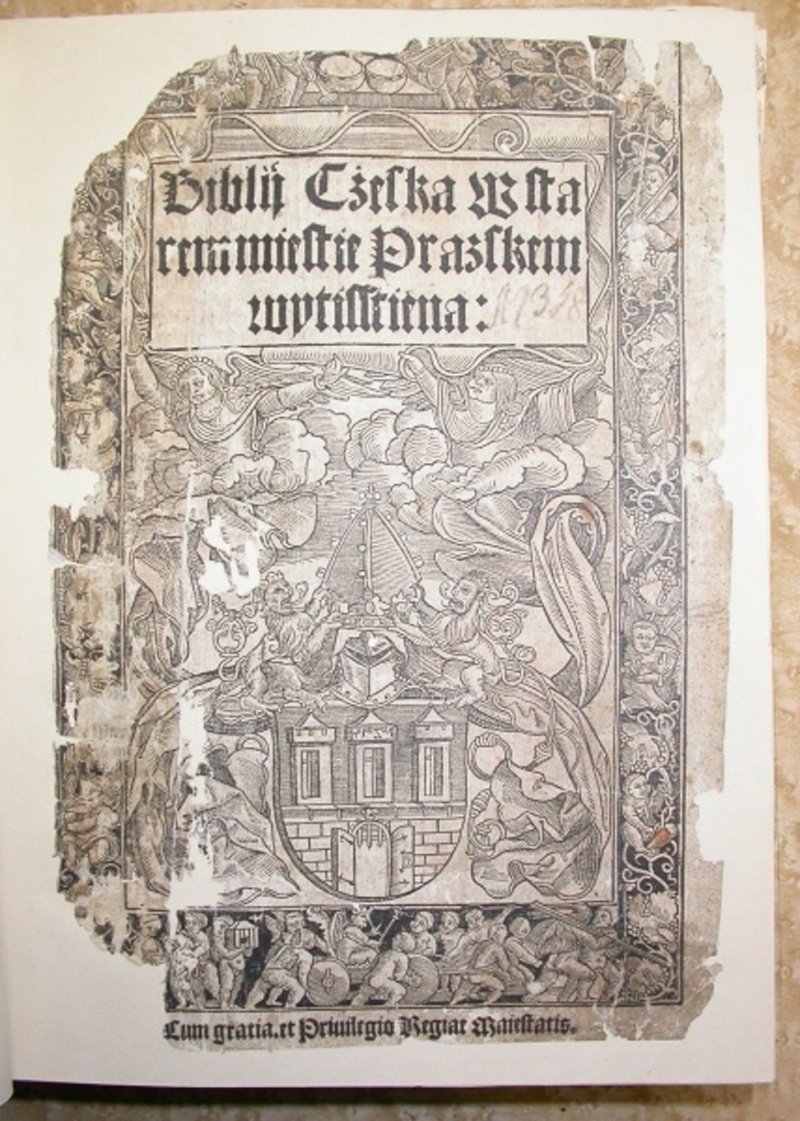 Biblij Cżeſka W ſta
rem mieſtie Prażſkem
wytiſſtiena:
Cum gratia. et Priuilegio Regiae Maieſtatis.